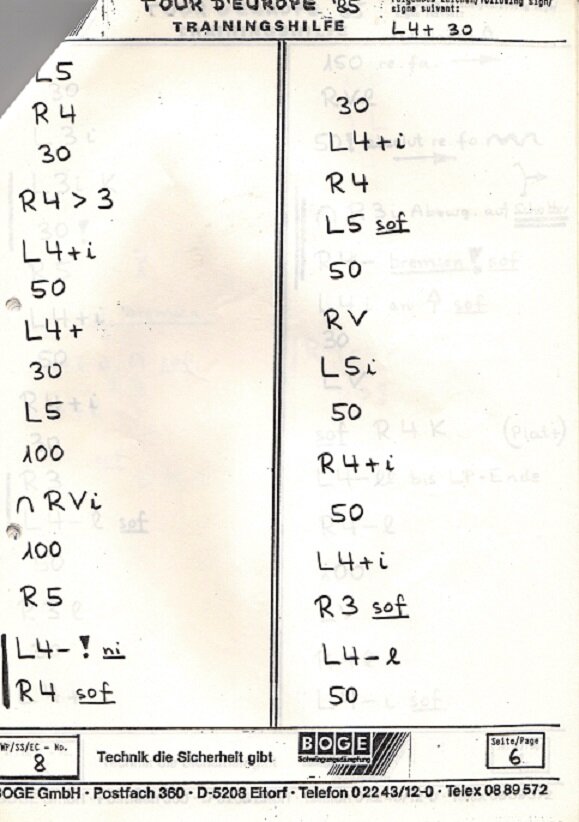 TOUR D'EUROPE '85
TRAININGSHILFE
signe suivant:
L4+ 30
L5
R4
30
R4>3
L4+i
50
L4+
30
L5
100
∩ RVi
100
R5
L4-! ni
R4 sof
30
L4+i
R4
L5 sof
50
RV
L5i
50
R4+i
50
L4+i
R3 sof
L4-l
50
WP/SS/EC - No.
8
Technik die Sicherheit gibt
BOGE
Schwingungsdämpfung
Seite/Page
6
BOGE GmbH · Postfach 360 · D-5208 Eitorf · Telefon 0 22 43/12-0 · Telex 08 89 572